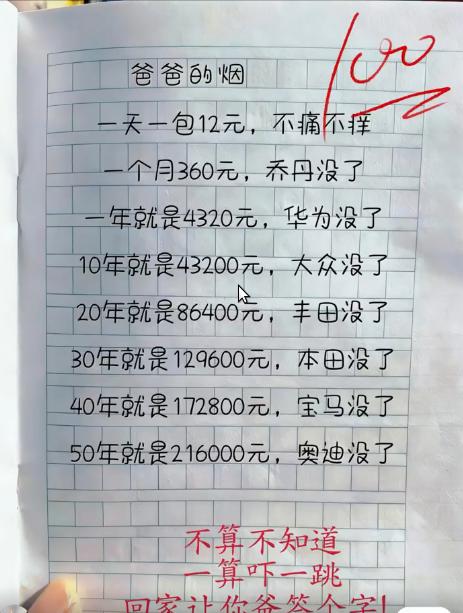 100
爸爸的烟
一天一包12元，不痛不痒
一个月360元，乔丹没了
一年就是4320元，华为没了
10年就是43200元，大众没了
20年就是86400元，丰田没了
30年就是129600元，本田没了
40年就是172800元，宝马没了
50年就是216000元，奥迪没了
不算不知道
一算吓一跳
回家让你爸签个字!